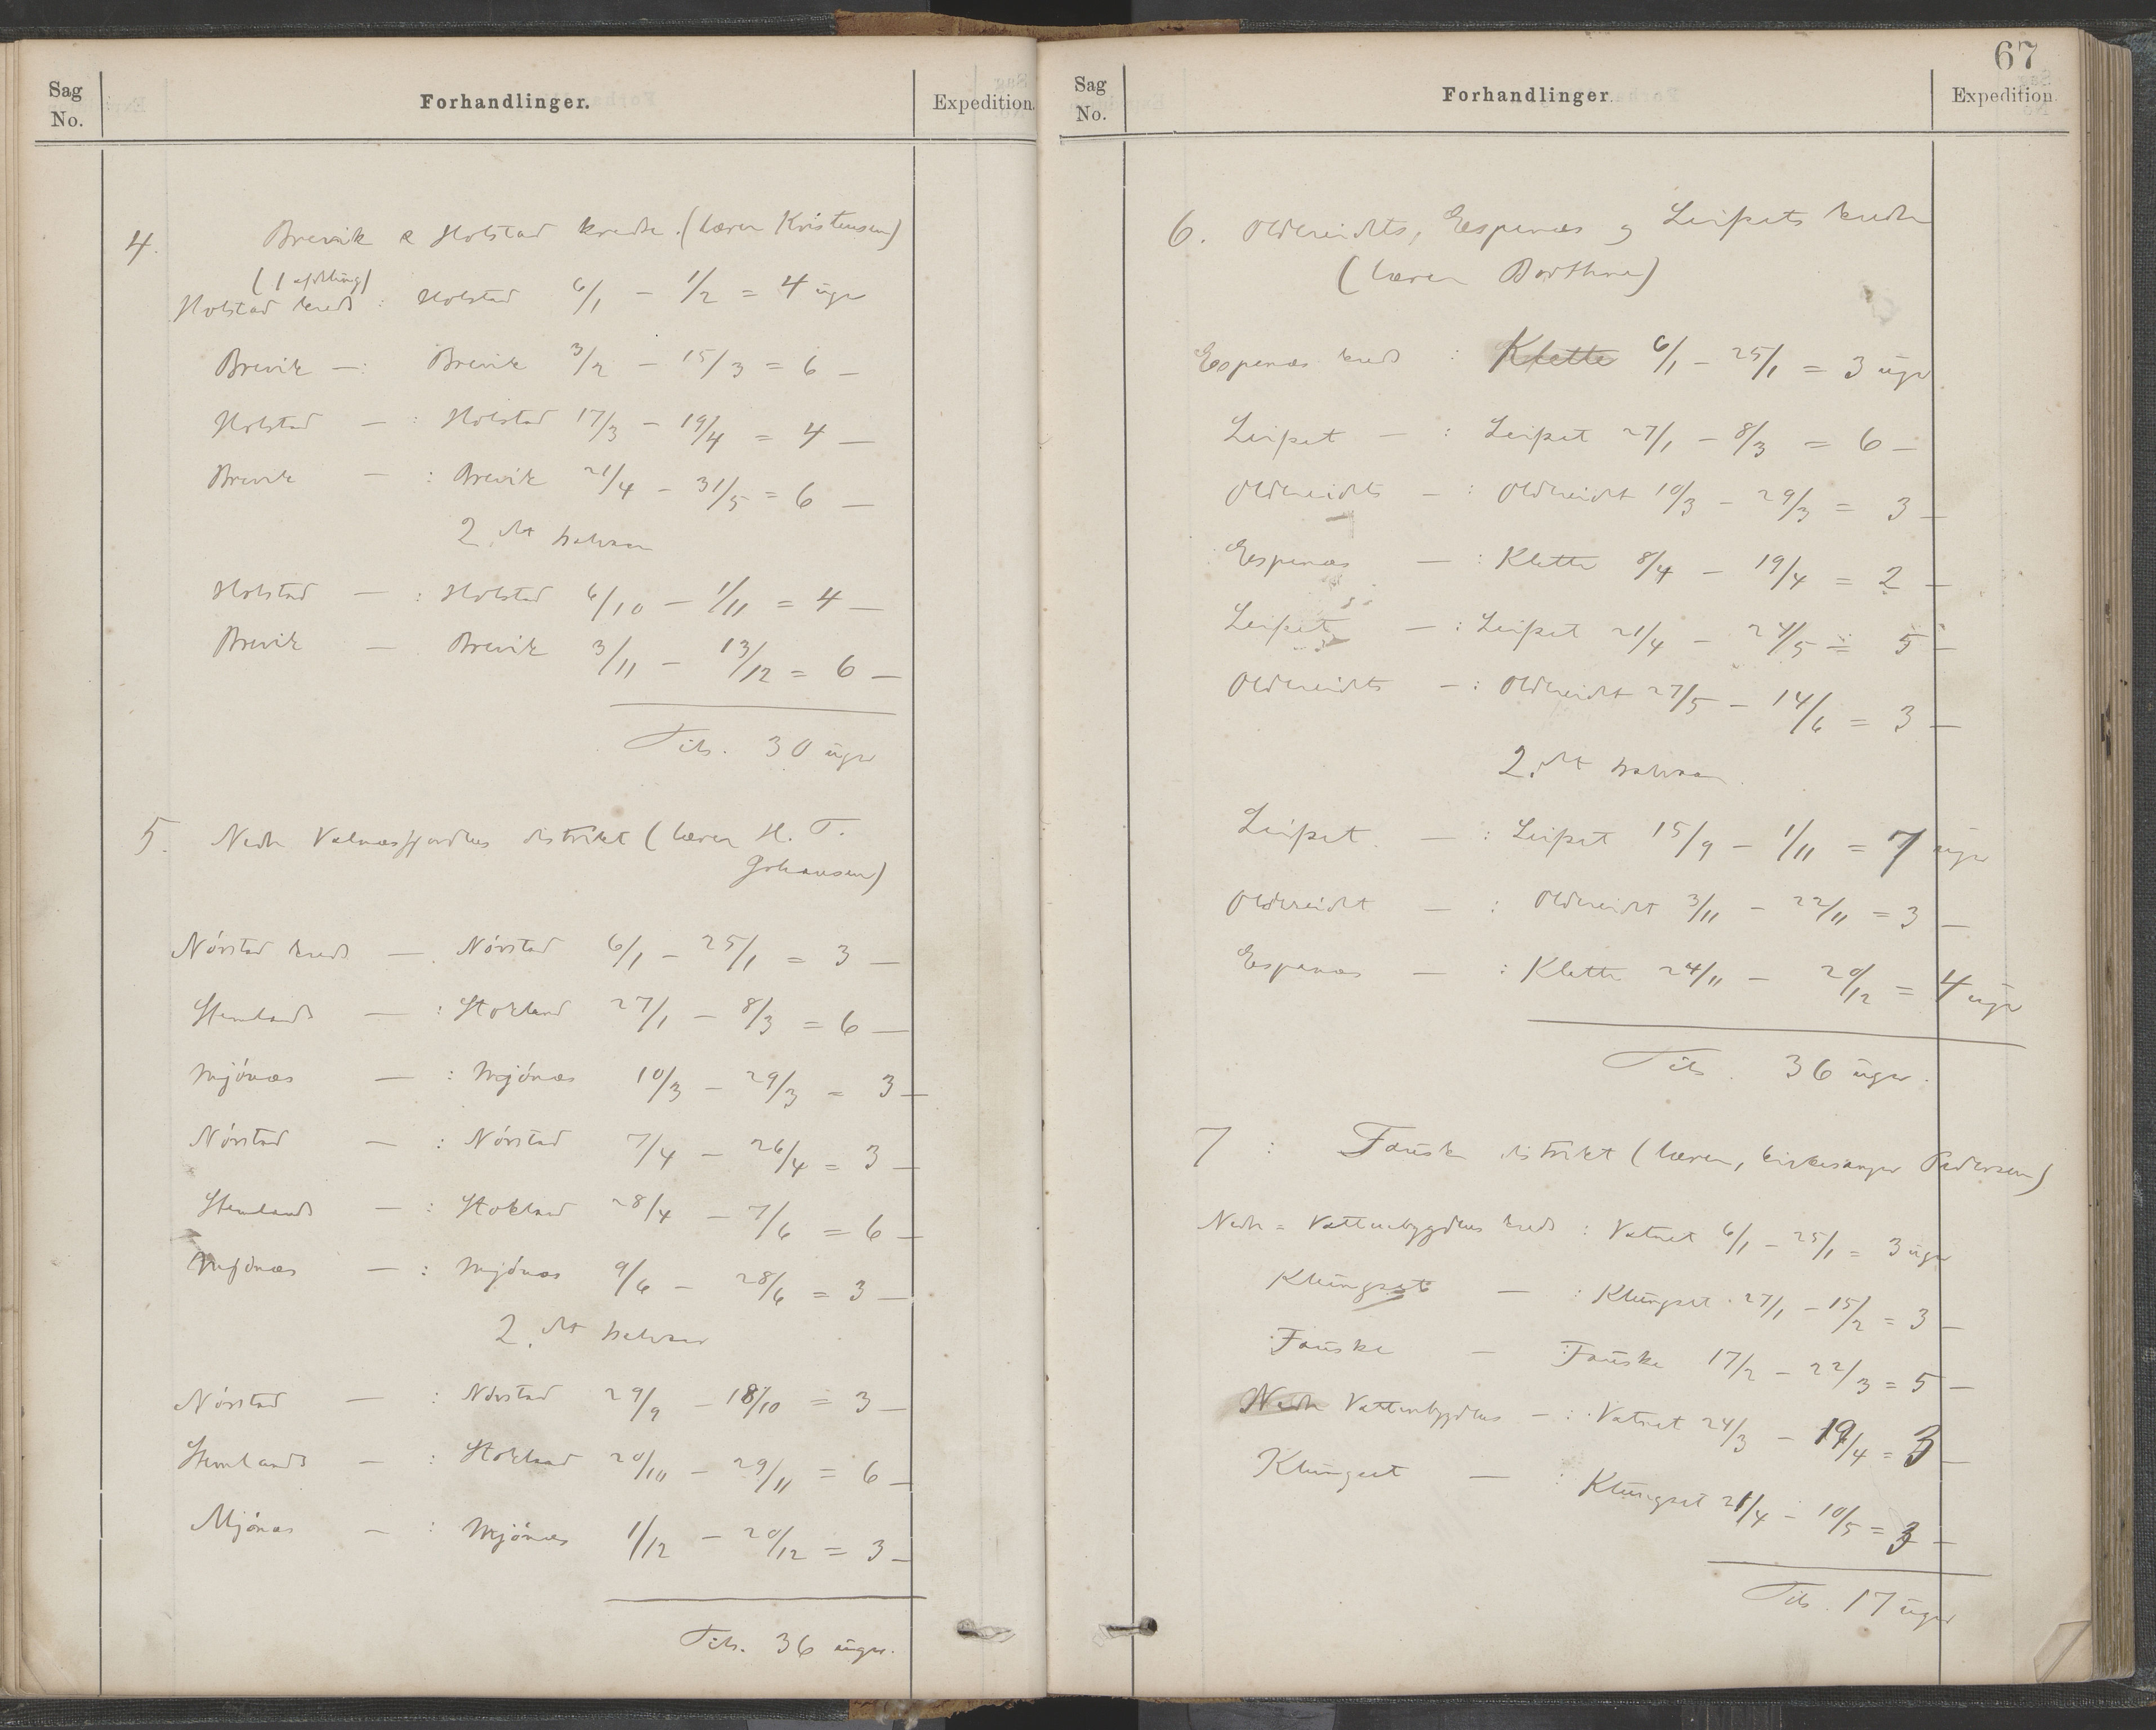 Sag
No.
Forhandlinger.
Expedition.
4. Brevik & Holstad kredse. (lærer Kristensen)
(1 afdeling)
Holstad kreds : Holstad 6/1 - 1/2 = 4 uger
Brevik —: Brevik 3/2 - 15/3 = 6 —
Holstad — : Holstad 17/3 - 19/4 = 4 —
Brevik — : Brevik 21/4 - 31/5 = 6 —
2. det halvaar
Holstad — : Holstad 6/10 - 1/11 = 4 —
Brevik — Brevik 3/11 - 13/12 = 6 —
Tils. 30 uger
5. Nedre Valnæsfjordens distrikt (lærer H. T.
Johansen)
Nórstad kreds — Nórstad 6/1 - 25/1 = 3 —
Stemlands — : Stokland 27/1 - 8/3 = 6 —
Mjónæs — : Mjónæs 10/3 - 29/3 = 3 —
Nórstad — : Nórstad 7/4 - 26/4 = 3 —
Stemlands — : Stokland 28/4 - 7/6 = 6 —
Mjónæs — : Mjónæs 9/6 - 28/6 = 3 —
2. det halvaar
Nórstad — : Nórstad 29/9 - 18/10 = 3 —
Stemlands — : Stokland 20/10 - 29/11 = 6 —
Mjónæs — : Mjónæs 1/12 - 20/12 = 3 —
Tils. 36 uger.
67
Sag
No.
Forhandlinger.
Expedition.
6. Oldereidets, Espenæs og Leifsets kredse
(lærer )
Espenæs kreds : Klette 6/1 - 25/1 = 3 uger
Leifset — : Leifset 27/1 - 8/3 = 6 —
Oldereidets — : Oldereidet 10/3 - 29/3 = 3 —
Espenæs — : Klette 8/4 - 19/4 = 2 —
Leifset — : Leifset 21/4 - 24/5 = 5 —
Oldereidets — : Oldereidet 27/5 - 14/6 = 3 —
2. det halvaar
Leifset — : Leifset 15/9 - 1/11 = 7 uger
Oldereidet — : Oldereidet 3/11 - 22/11 = 3 —
Espenæs — : Klette 24/11 - 20/12 = 4 uger
Tils. 36 uger.
7 : Fauske distrikt (lærer, kirkesanger Pedersen)
Nedre = Vattenbygdens kreds : Vatnet 6/1 - 25/1 = 3 uger
Klungset — : Klungset 27/1 - 15/2 = 3 —
Fauske — Fauske 17/2 - 22/3 = 5 —
Nedre Vattenbygdens — : Vatnet 24/3 - 19/4 = 3 —
Klungset — : Klungset 21/4 - 10/5 = 3 —
Tils. 17 uger